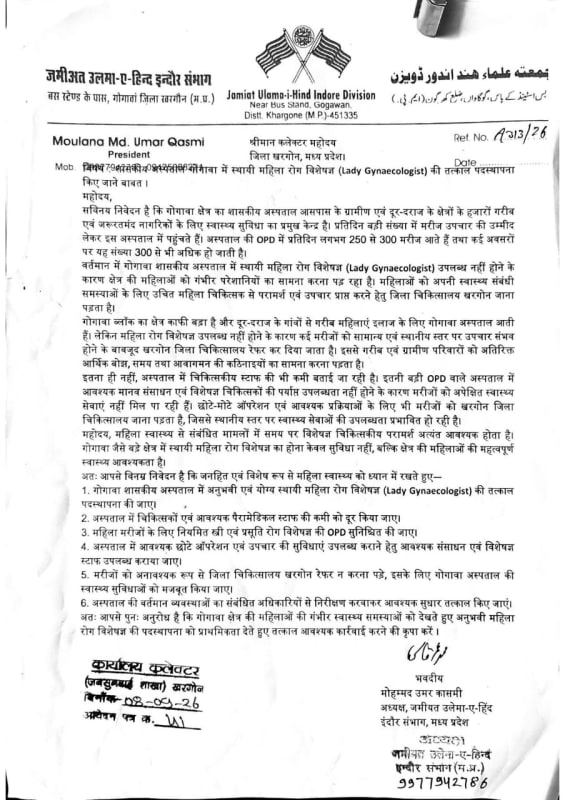 जमीअत उलमा-ए-हिन्द इन्दौर संभाग
बस स्टेण्ड के पास, गोगावां जिला खरगोन (म.प्र.)
Jamiat Ulama-i-Hind Indore Division
Near Bus Stand, Gogawan.
Distt. Khargone (M.P.)-451335
جمعتہ علماء ھند اندور ڈویزن
Moulana Md. Umar Qasmi
President
Mob.
श्रीमान कलेक्टर महोदय
जिला खरगोन, मध्य प्रदेश।
Ref. No.
Date
विषय शासकीय अस्पताल गोगावा में स्थायी महिला रोग विशेषज्ञ (Lady Gynaecologist) की तत्काल पदस्थापना
किए जाने बाबत ।
महोदय,
सविनय निवेदन है कि गोगावा क्षेत्र का शासकीय अस्पताल आसपास के ग्रामीण एवं दूर-दराज के क्षेत्रों के हजारों गरीब
एवं जरूरतमंद नागरिकों के लिए स्वास्थ्य सुविधा का प्रमुख केन्द्र है। प्रतिदिन बड़ी संख्या में मरीज उपचार की उम्मीद
लेकर इस अस्पताल में पहुंचते हैं। अस्पताल की OPD में प्रतिदिन लगभग 250 से 300 मरीज आते हैं तथा कई अवसरों
पर यह संख्या 300 से भी अधिक हो जाती है।
वर्तमान में गोगावा शासकीय अस्पताल में स्थायी महिला रोग विशेषज्ञ (Lady Gynaecologist) उपलब्ध नहीं होने के
कारण क्षेत्र की महिलाओं को गंभीर परेशानियों का सामना करना पड़ रहा है। महिलाओं को अपनी स्वास्थ्य संबंधी
समस्याओं के लिए उचित महिला चिकित्सक से परामर्श एवं उपचार प्राप्त करने हेतु जिला चिकित्सालय खरगोन जाना
पड़ता है।
गोगावा ब्लॉक का क्षेत्र काफी बड़ा है और दूर-दराज के गांवों से गरीब महिलाएं इलाज के लिए गोगावा अस्पताल आती
हैं। लेकिन महिला रोग विशेषज्ञ उपलब्ध नहीं होने के कारण कई मरीजों को सामान्य एवं स्थानीय स्तर पर उपचार संभव
होने के बावजूद खरगोन जिला चिकित्सालय रेफर कर दिया जाता है। इससे गरीब एवं ग्रामीण परिवारों को अतिरिक्त
आर्थिक बोझ, समय तथा आवागमन की कठिनाइयों का सामना करना पड़ता है।
इतना ही नहीं, अस्पताल में चिकित्सकीय स्टाफ की भी कमी बताई जा रही है। इतनी बड़ी OPD वाले अस्पताल में
आवश्यक मानव संसाधन एवं विशेषज्ञ चिकित्सकों की पर्याप्त उपलब्धता नहीं होने के कारण मरीजों को अपेक्षित स्वास्थ्य
सेवाएं नहीं मिल पा रही हैं। छोटे-मोटे ऑपरेशन एवं आवश्यक प्रक्रियाओं के लिए भी मरीजों को खरगोन जिला
चिकित्सालय जाना पड़ता है, जिससे स्थानीय स्तर पर स्वास्थ्य सेवाओं की उपलब्धता प्रभावित हो रही है।
महोदय, महिला स्वास्थ्य से संबंधित मामलों में समय पर विशेषज्ञ चिकित्सकीय परामर्श अत्यंत आवश्यक होता है।
गोगावा जैसे बड़े क्षेत्र में स्थायी महिला रोग विशेषज्ञ का होना केवल सुविधा नहीं, बल्कि क्षेत्र की महिलाओं की महत्वपूर्ण
स्वास्थ्य आवश्यकता है।
अतः आपसे विनम्र निवेदन है कि जनहित एवं विशेष रूप से महिला स्वास्थ्य को ध्यान में रखते हुए—
1. गोगावा शासकीय अस्पताल में अनुभवी एवं योग्य स्थायी महिला रोग विशेषज्ञ (Lady Gynaecologist) की तत्काल
पदस्थापना की जाए।
2. अस्पताल में चिकित्सकों एवं आवश्यक पैरामेडिकल स्टाफ की कमी को दूर किया जाए।
3. महिला मरीजों के लिए नियमित स्त्री एवं प्रसूति रोग विशेषज्ञ की OPD सुनिश्चित की जाए।
4. अस्पताल में आवश्यक छोटे ऑपरेशन एवं उपचार की सुविधाएं उपलब्ध कराने हेतु आवश्यक संसाधन एवं विशेषज्ञ
स्टाफ उपलब्ध कराया जाए।
5. मरीजों को अनावश्यक रूप से जिला चिकित्सालय खरगोन रेफर न करना पड़े, इसके लिए गोगावा अस्पताल की
स्वास्थ्य सुविधाओं को मजबूत किया जाए।
6. अस्पताल की वर्तमान व्यवस्थाओं का संबंधित अधिकारियों से निरीक्षण करवाकर आवश्यक सुधार तत्काल किए जाएं।
अतः आपसे पुनः अनुरोध है कि गोगावा क्षेत्र की महिलाओं की गंभीर स्वास्थ्य समस्याओं को देखते हुए अनुभवी महिला
रोग विशेषज्ञ की पदस्थापना को प्राथमिकता देते हुए तत्काल आवश्यक कार्रवाई करने की कृपा करें ।
कार्यालय कलेक्टर
(जनसुनवाई शाखा) खरगोन
दिनांक
आवेदन पत्र क.
भवदीय
मोहम्मद उमर कासमी
अध्यक्ष, जमीयत उलेमा-ए-हिंद
इंदौर संभाग, मध्य प्रदेश
अध्यक्ष
जमीयत उलेमा-ए-हिन्द
इन्दौर संभाग (म.प्र.)
9977942786